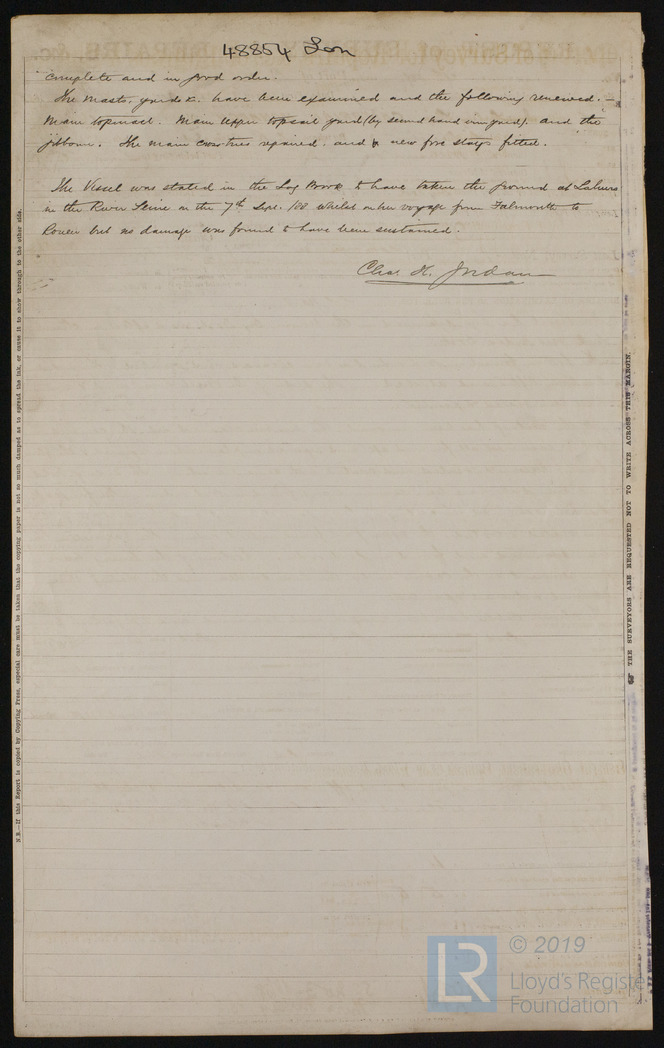 48854 Lon
complete and in good order.
The masts, yards &c. have been examined and the following renewed. —
Main topmast. Main upper topsail yard (by second hand iron yard). and the
jibboom. The main crosstrees repaired, and new fore stays fitted.
The Vessel was stated in the Log Book to have taken the ground at
in the River Seine on the 7th Sept. /88 whilst on her voyage from Falmouth to
Rouen but no damage was found to have been sustained.
Chas. H. Jordan
N.B.—If this Report is copied by Copying Press, especial care must be taken that the copying paper is not so much damped as to spread the ink, or cause it to show through to the other side.
THE SURVEYORS ARE REQUESTED NOT TO WRITE ACROSS THIS MARGIN.
LR
© 2019
Lloyd's Register
Foundation